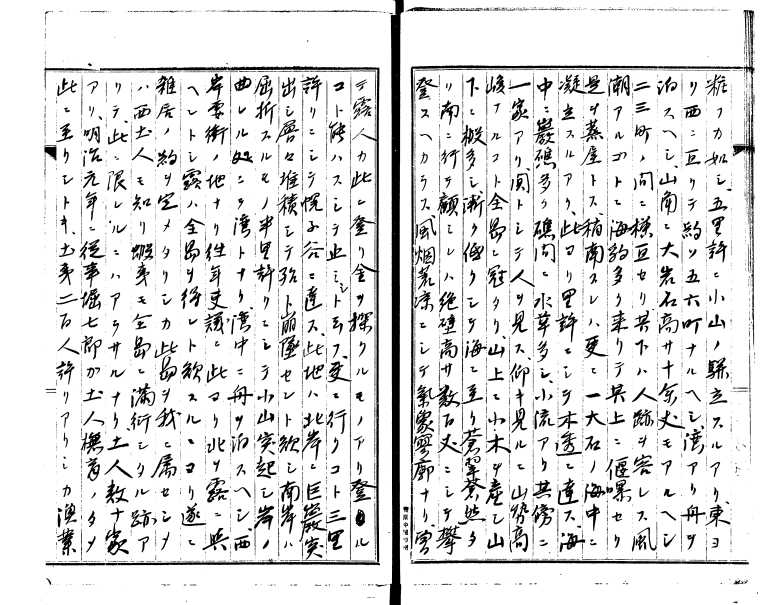 粧フカ如シ、五里許ニ小山ノ驟立スルアリ、東ヨ
リ西ニ亘リテ約ソ五六町ナルヘシ、湾アリ舟ヲ
泊スヘシ、山角ニ大岩石高サ十余丈モアルヘシ
二三町ノ間ニ横亘セリ其下ハ人跡ヲ容レス風
潮アルコトニ海豹多ク来リテ其上ニ偃 セリ
是ヲ 屋トス稍南スレハ更ニ一大石ノ海中ニ
凝立スルアリ、此ヨリ里許ニシテ木透ニ達ス、海
中ニ巖礁多ク礁間ニ水草多シ、小流アリ其傍ニ
一家アリ、関トシテ人ヲ見ス、仰キ見ルニ山勢高
峻ナルコト全島ニ冠タリ、山上ニ小木ヲ産シ山
下ニ椴多シ、漸ク低クシテ海ニ至リ蒼翠 然タ
リ南ニ行テ顧ミレハ絶壁高サ数百丈ニシテ攀
登スヘカラス風烟荒凉ニシテ氣象寥廓ナリ、曽
テ露人カ此ニ登リ金ヲ探クルモノアリ登ル
コト能ハスシテ止ミシト云フ、更ニ行クコト三里
許リニシテ 谷ニ達ス、此地ハ北岸ニ巨巖突
出シ層々堆積シテ殆ト崩墜セント欲シ南岸ハ
屈折スルモノ半里許リニシテ小山突起シ岸ノ
曲レル処ニテ湾トナリ湾中ニ舟ヲ泊スヘシ西
岸要衝ノ地ナリ往年吏議ニ此ヨリ北ヲ露ニ與
ヘントシ露ハ全島ヲ得ント欲スルニヨリ遂ニ
雑居ノ約ヲ定メタリシカ此島ヲ我ニ属セシメ
ハ西土人モ知リ 事モ全島ニ満衍シタル跡ア
リテ、此ニ限レルニハアラサルナリ土人数十家
アリ、明治元年ニ従事堀七郎カ土人撫育ノタメ
此ニ至リシトキ、土事二百人許リアリシカ漁業